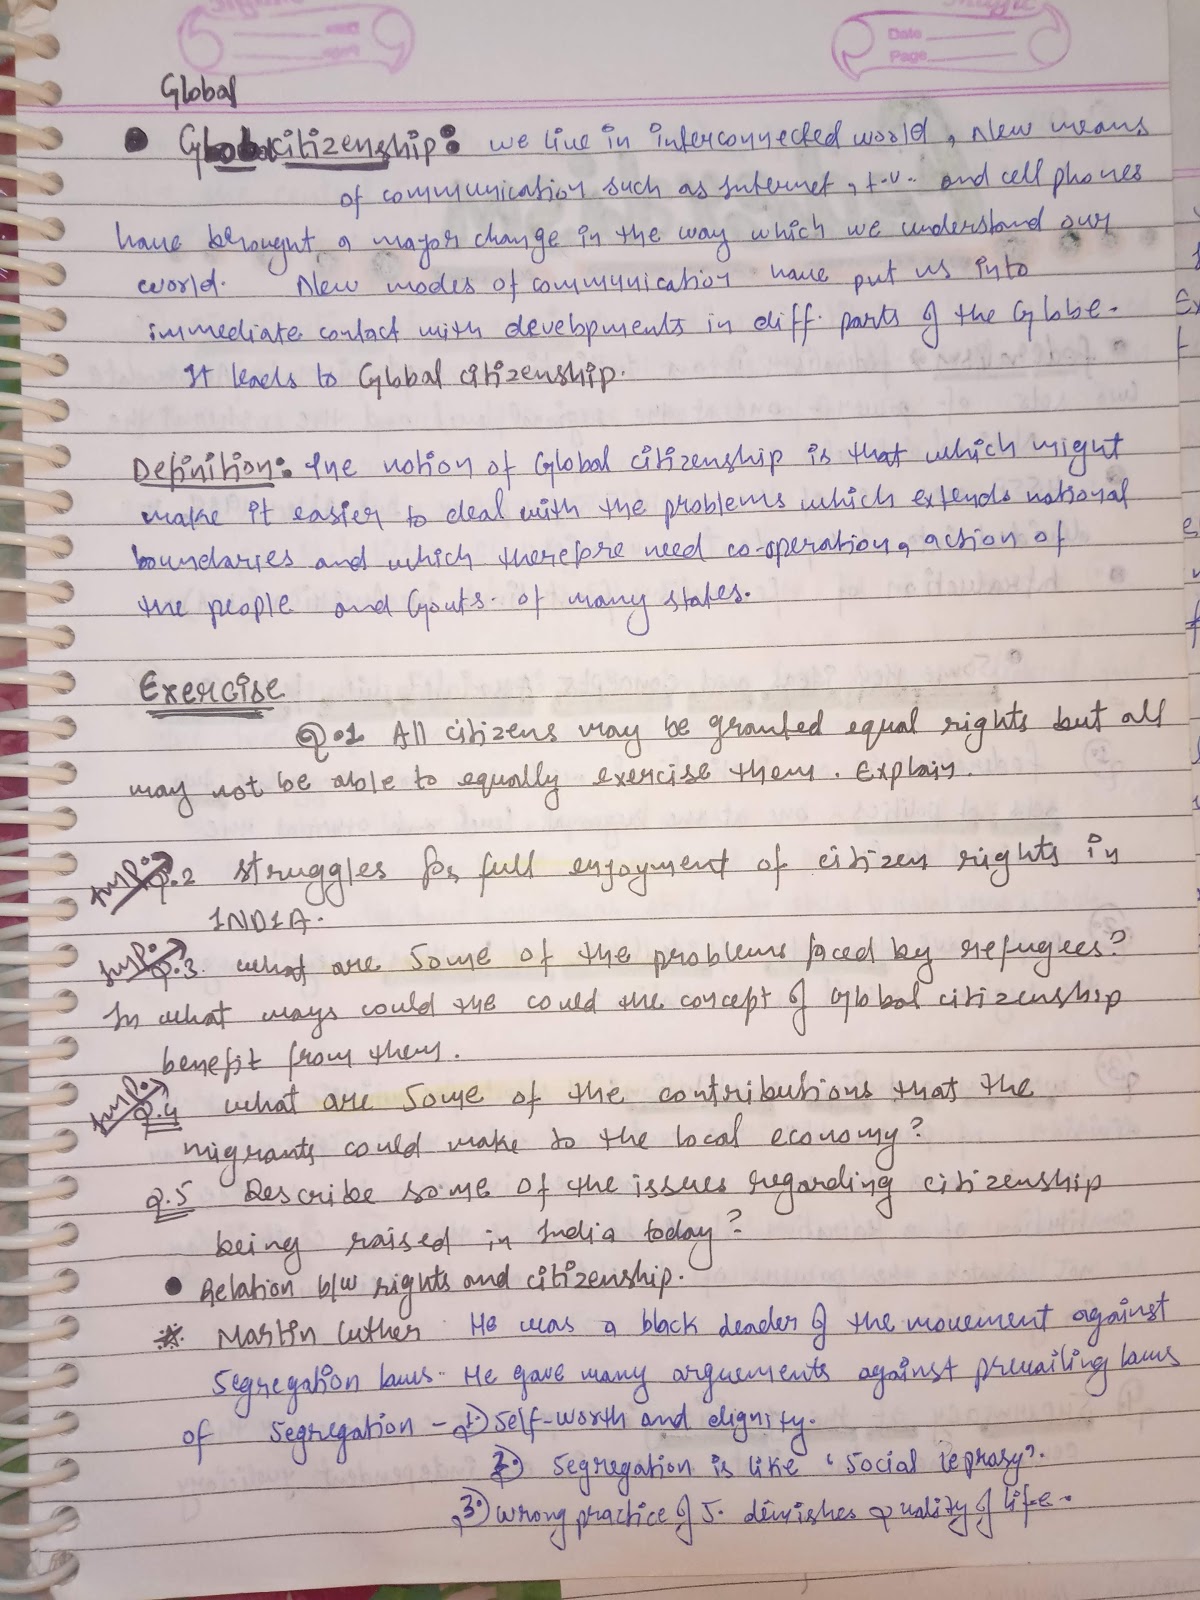 Date
Page
Global
● Global citizenship: we live in interconnected world, New means
of communication such as Internet, t.v. and cell phones
have brought a major change in the way which we understand our
world. New modes of communication have put us into
immediate contact with developments in diff. parts of the Globe.
It leads to Global citizenship.
Definition: The notion of Global citizenship is that which might
make it easier to deal with the problems which extends national
boundaries and which therefore need co-operation, action of
the people and Govts. of many states.
Exercise
Q.1 All citizens may be granted equal rights but all
may not be able to equally exercise them. Explain.
Imp. Q.2 struggles for full enjoyment of citizen rights in
INDIA.
Imp. Q.3. what are some of the problems faced by refugees?
In what ways could the could the concept of Global citizenship
benefit from them.
Imp. Q.4 what are some of the contributions that the
migrants could make to the local economy?
Q.5 Describe some of the issues regarding citizenship
being raised in India today?
● Relation b/w rights and citizenship.
* Martin Luther. He was a black leader of the movement against
segregation laws. He gave many arguements against prevailing laws
of segregation - 1.) self-worth and dignity.
2.) segregation is like 'social leprosy'.
3.) wrong practice of S. diminishes quality of life.